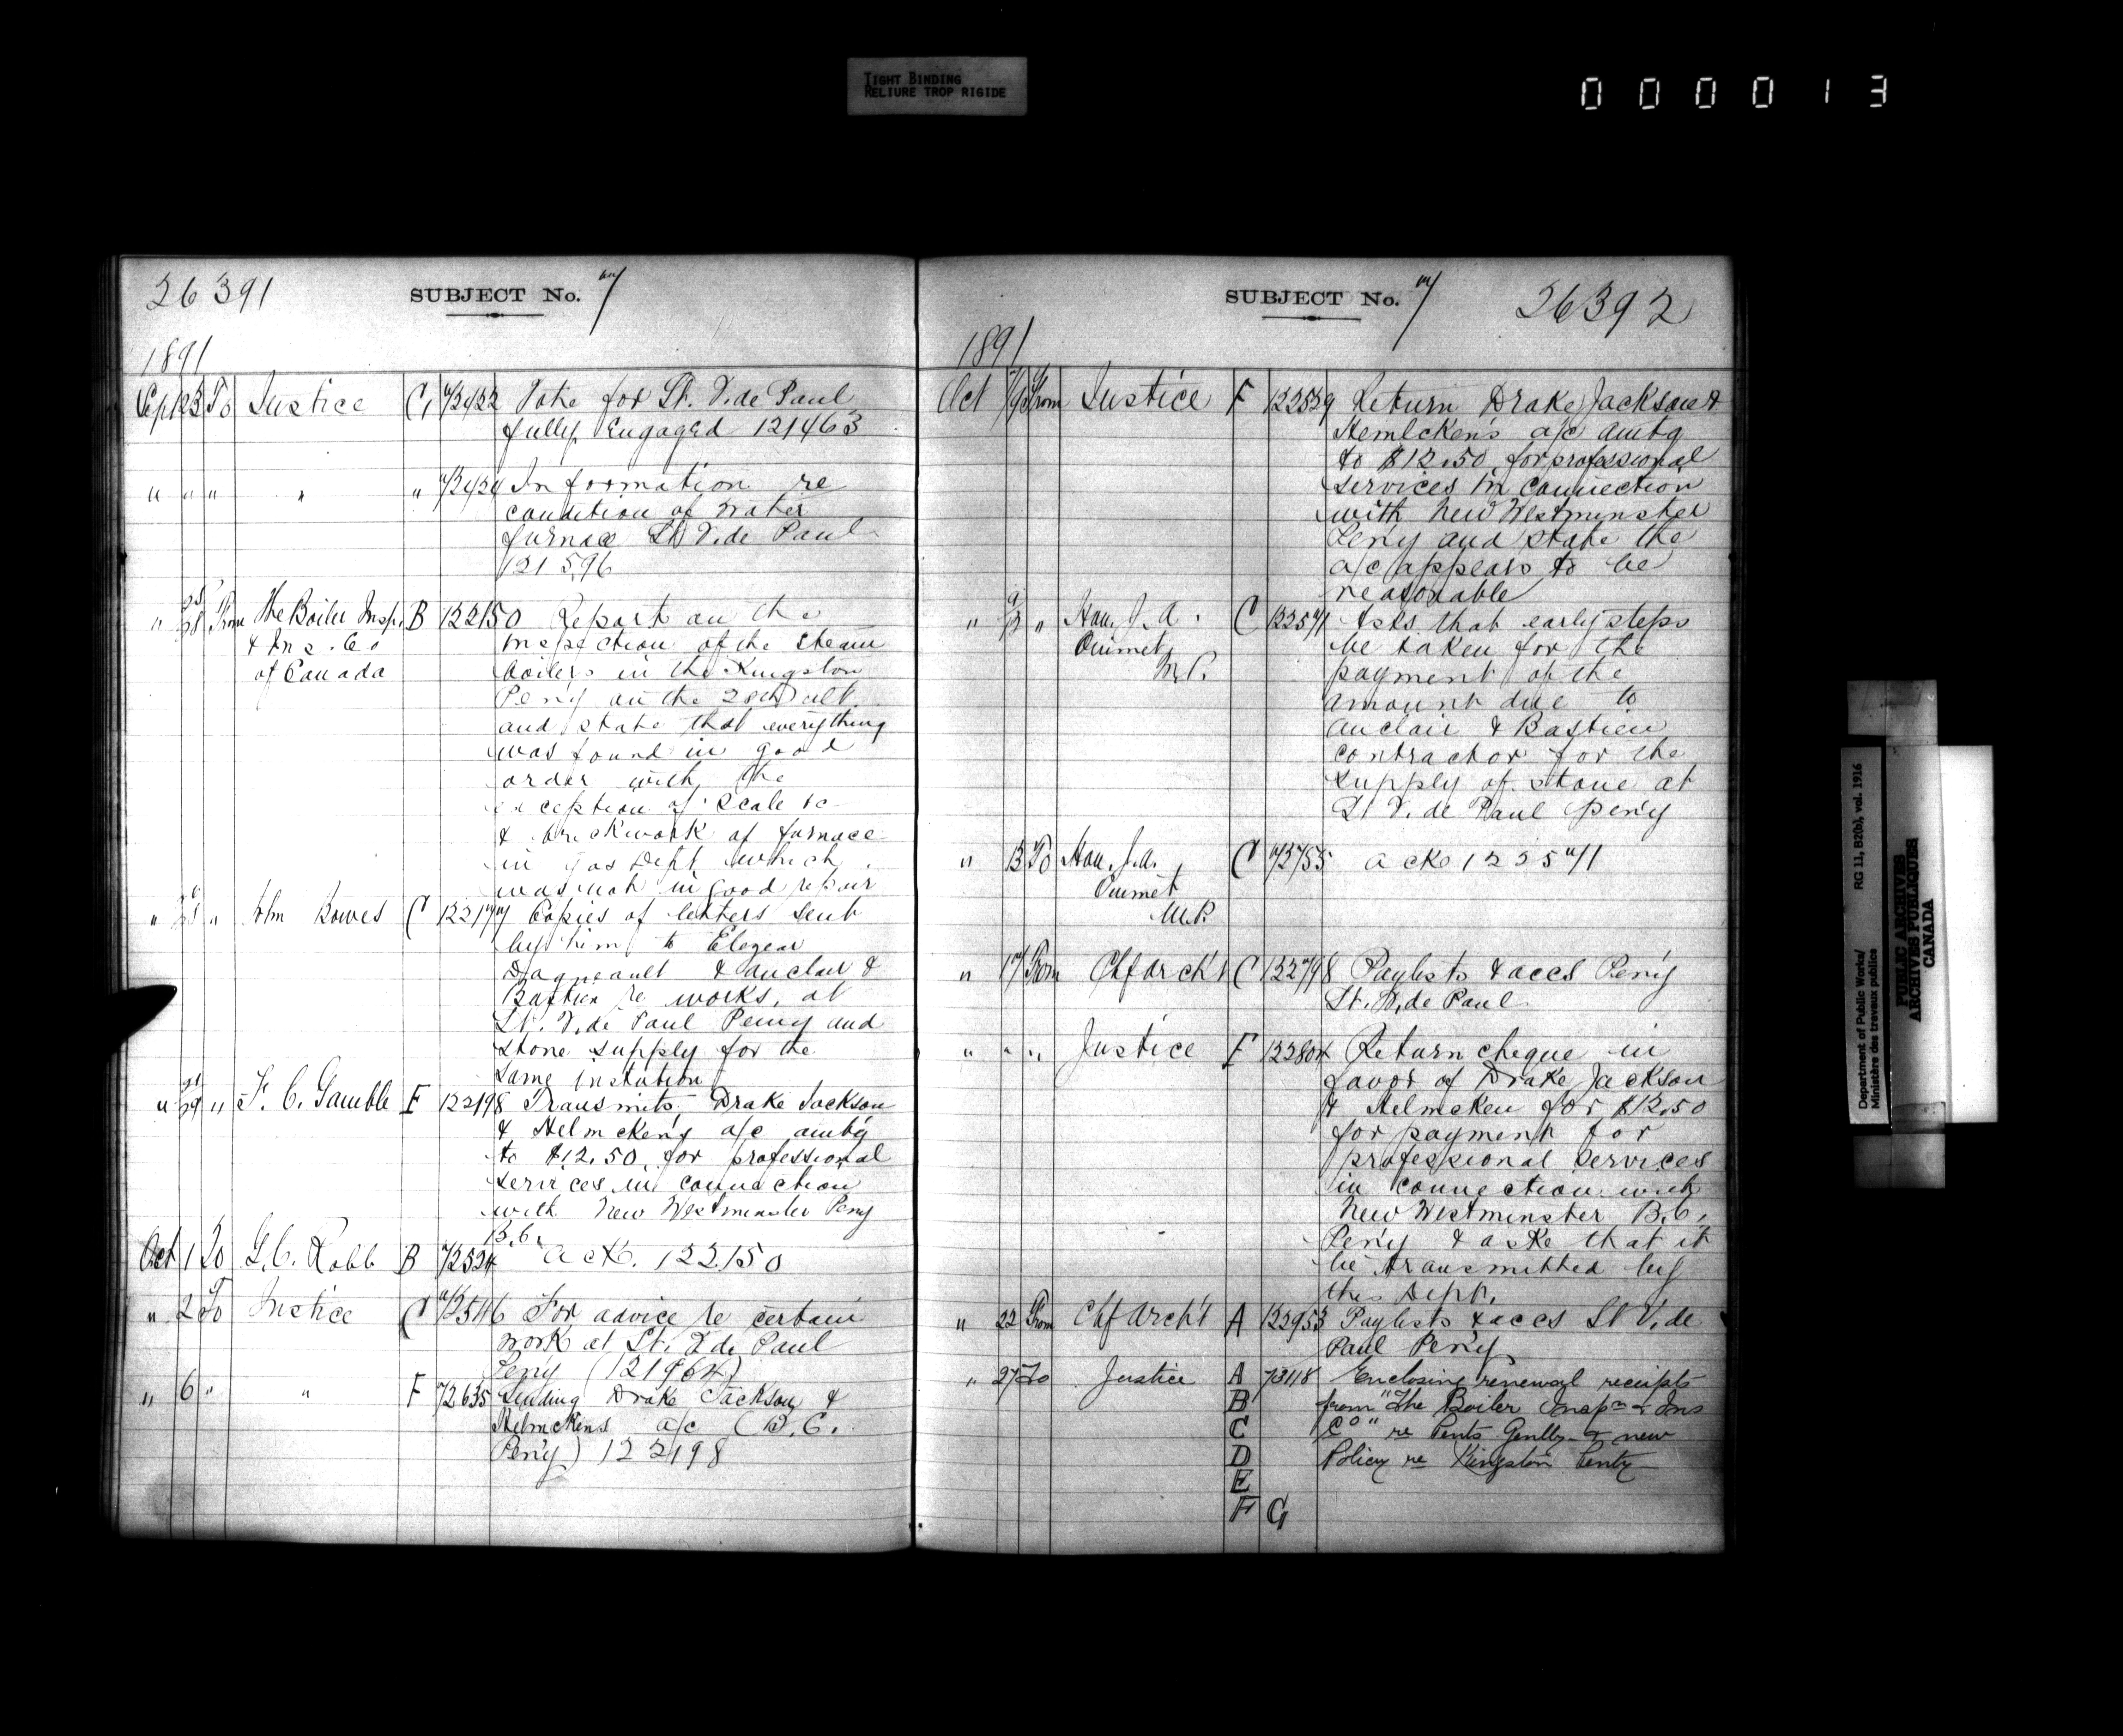 TIGHT BINDING
RELIURE TROP RIGIDE
000013
26391 SUBJECT No. 7
1891
Sept 23 To Justice C 72422 Vote for St. V. de Paul
fully engaged 121463
" " " " " 72424 Information re
condition of water
furnace St V. de Paul
121596
" 28 From The Boiler Insp. B 122150 Report on the
& Ins. Co inspection of the steam
of Canada boilers in the Kingston
Pen'y on the 28th ult.
and state that everything
was found in good
order with the
exception of scale &c
& brickwork of furnace
in gas Dept which
was not in good repair
" 28 " John Bowes C 122177 Copies of letters sent
by him to Elezear
Dagneault & Auclair &
Bastien re works, at
St. V. de Paul Peny and
stone supply for the
same instution
" 29 " F. C. Gamble F 122198 Transmits Drake Jackson
& Helmcken's a/c amt'g
to $12.50, for professional
services in connection
with New Westminster Peny
B.C.
Oct 1 To G. C. Robb B 72524 ack. 122150
" 2 To Justice C 72546 For advice re certain
work at St. V de Paul
Peny (121964)
" 6 " " F 72635 Sending Drake Jackson &
Helmckens a/c (B.C.
Pen'y) 122198
SUBJECT No. 7 26392
1891
Oct From Justice F 122539 Return Drake Jackson &
Hemlcken's a/c amt'g
to $12.50, for professional
services in connection
with New Westminster
Pen'y and state the
a/c appears to be
reasonable
" " Hon. J. A. C 122571 Asks that early steps
Ouimet, be taken for the
M.P. payment of the
amount due to
Auclair & Bastien
contractor for the
supply of stone at
St V. de Paul Pen'y
" 13 To Hon. J. A. C 72755 ack 122571
Ouimet
M.P.
" 17 From Chf Arch't C 122798 Paylists & accs Pen'y
St. V. de Paul
" " " Justice F 122804 Return cheque in
favor of Drake Jackson
& Helmcken for $12.50
for payment for
professional services
in connection with
New Westminster B.C.
Pen'y & aske that it
be transmitted by
this Dept.
" 22 From Chf Arch't A 122953 Paylists & accs St V. de
Paul Pen'y
" 27 To Justice A 73118 Enclosing renewal receipts
B from "The Boiler Inspn & Ins
C Co" re Pents Genlly & new
D Policy re Kingston Penty
E
F G
Department of Public Works/ RG 11, B2(b), vol. 1916
Ministère des travaux publics
PUBLIC ARCHIVES
ARCHIVES PUBLIQUES
CANADA